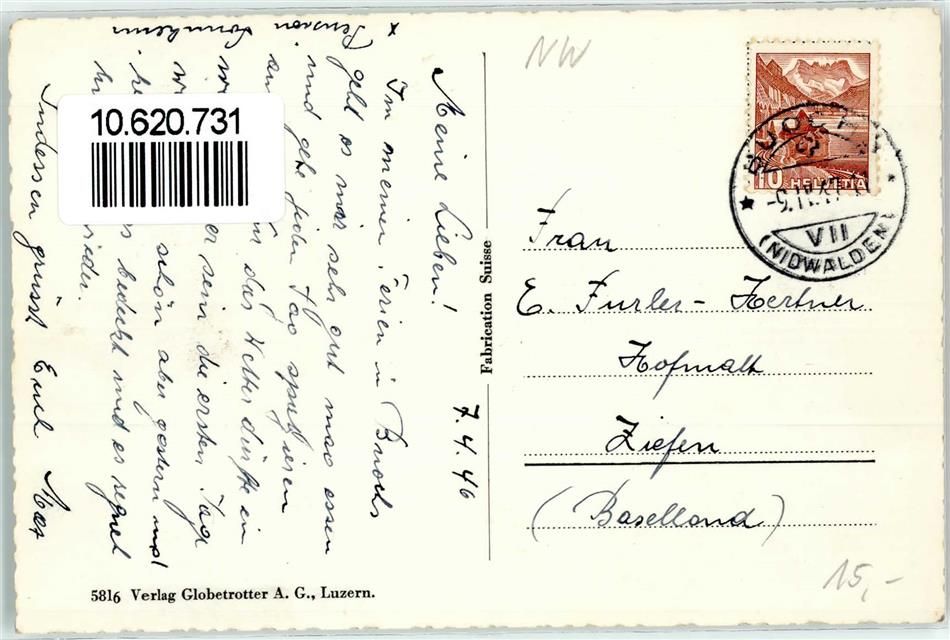 10.620.731
NW
Meine Lieben! 7.4.46
In meinen Ferien in Buochs
geht es mir sehr gut mag essen
und gehe jeden Tag spazieren
das Wetter dürfte ein
sein die ersten Tage
schön aber gestern und
bedeckt und es regnet
wieder.
Indessen grüsst Euch
x Pension Sonnheim
Fabrication Suisse
HELVETIA
10
BUOCHS
VII
(NIDWALDEN)
Frau
E. Furler-Hertner
Hofmatt
Ziefen
(Baselland)
15,-
5816 Verlag Globetrotter A. G., Luzern.